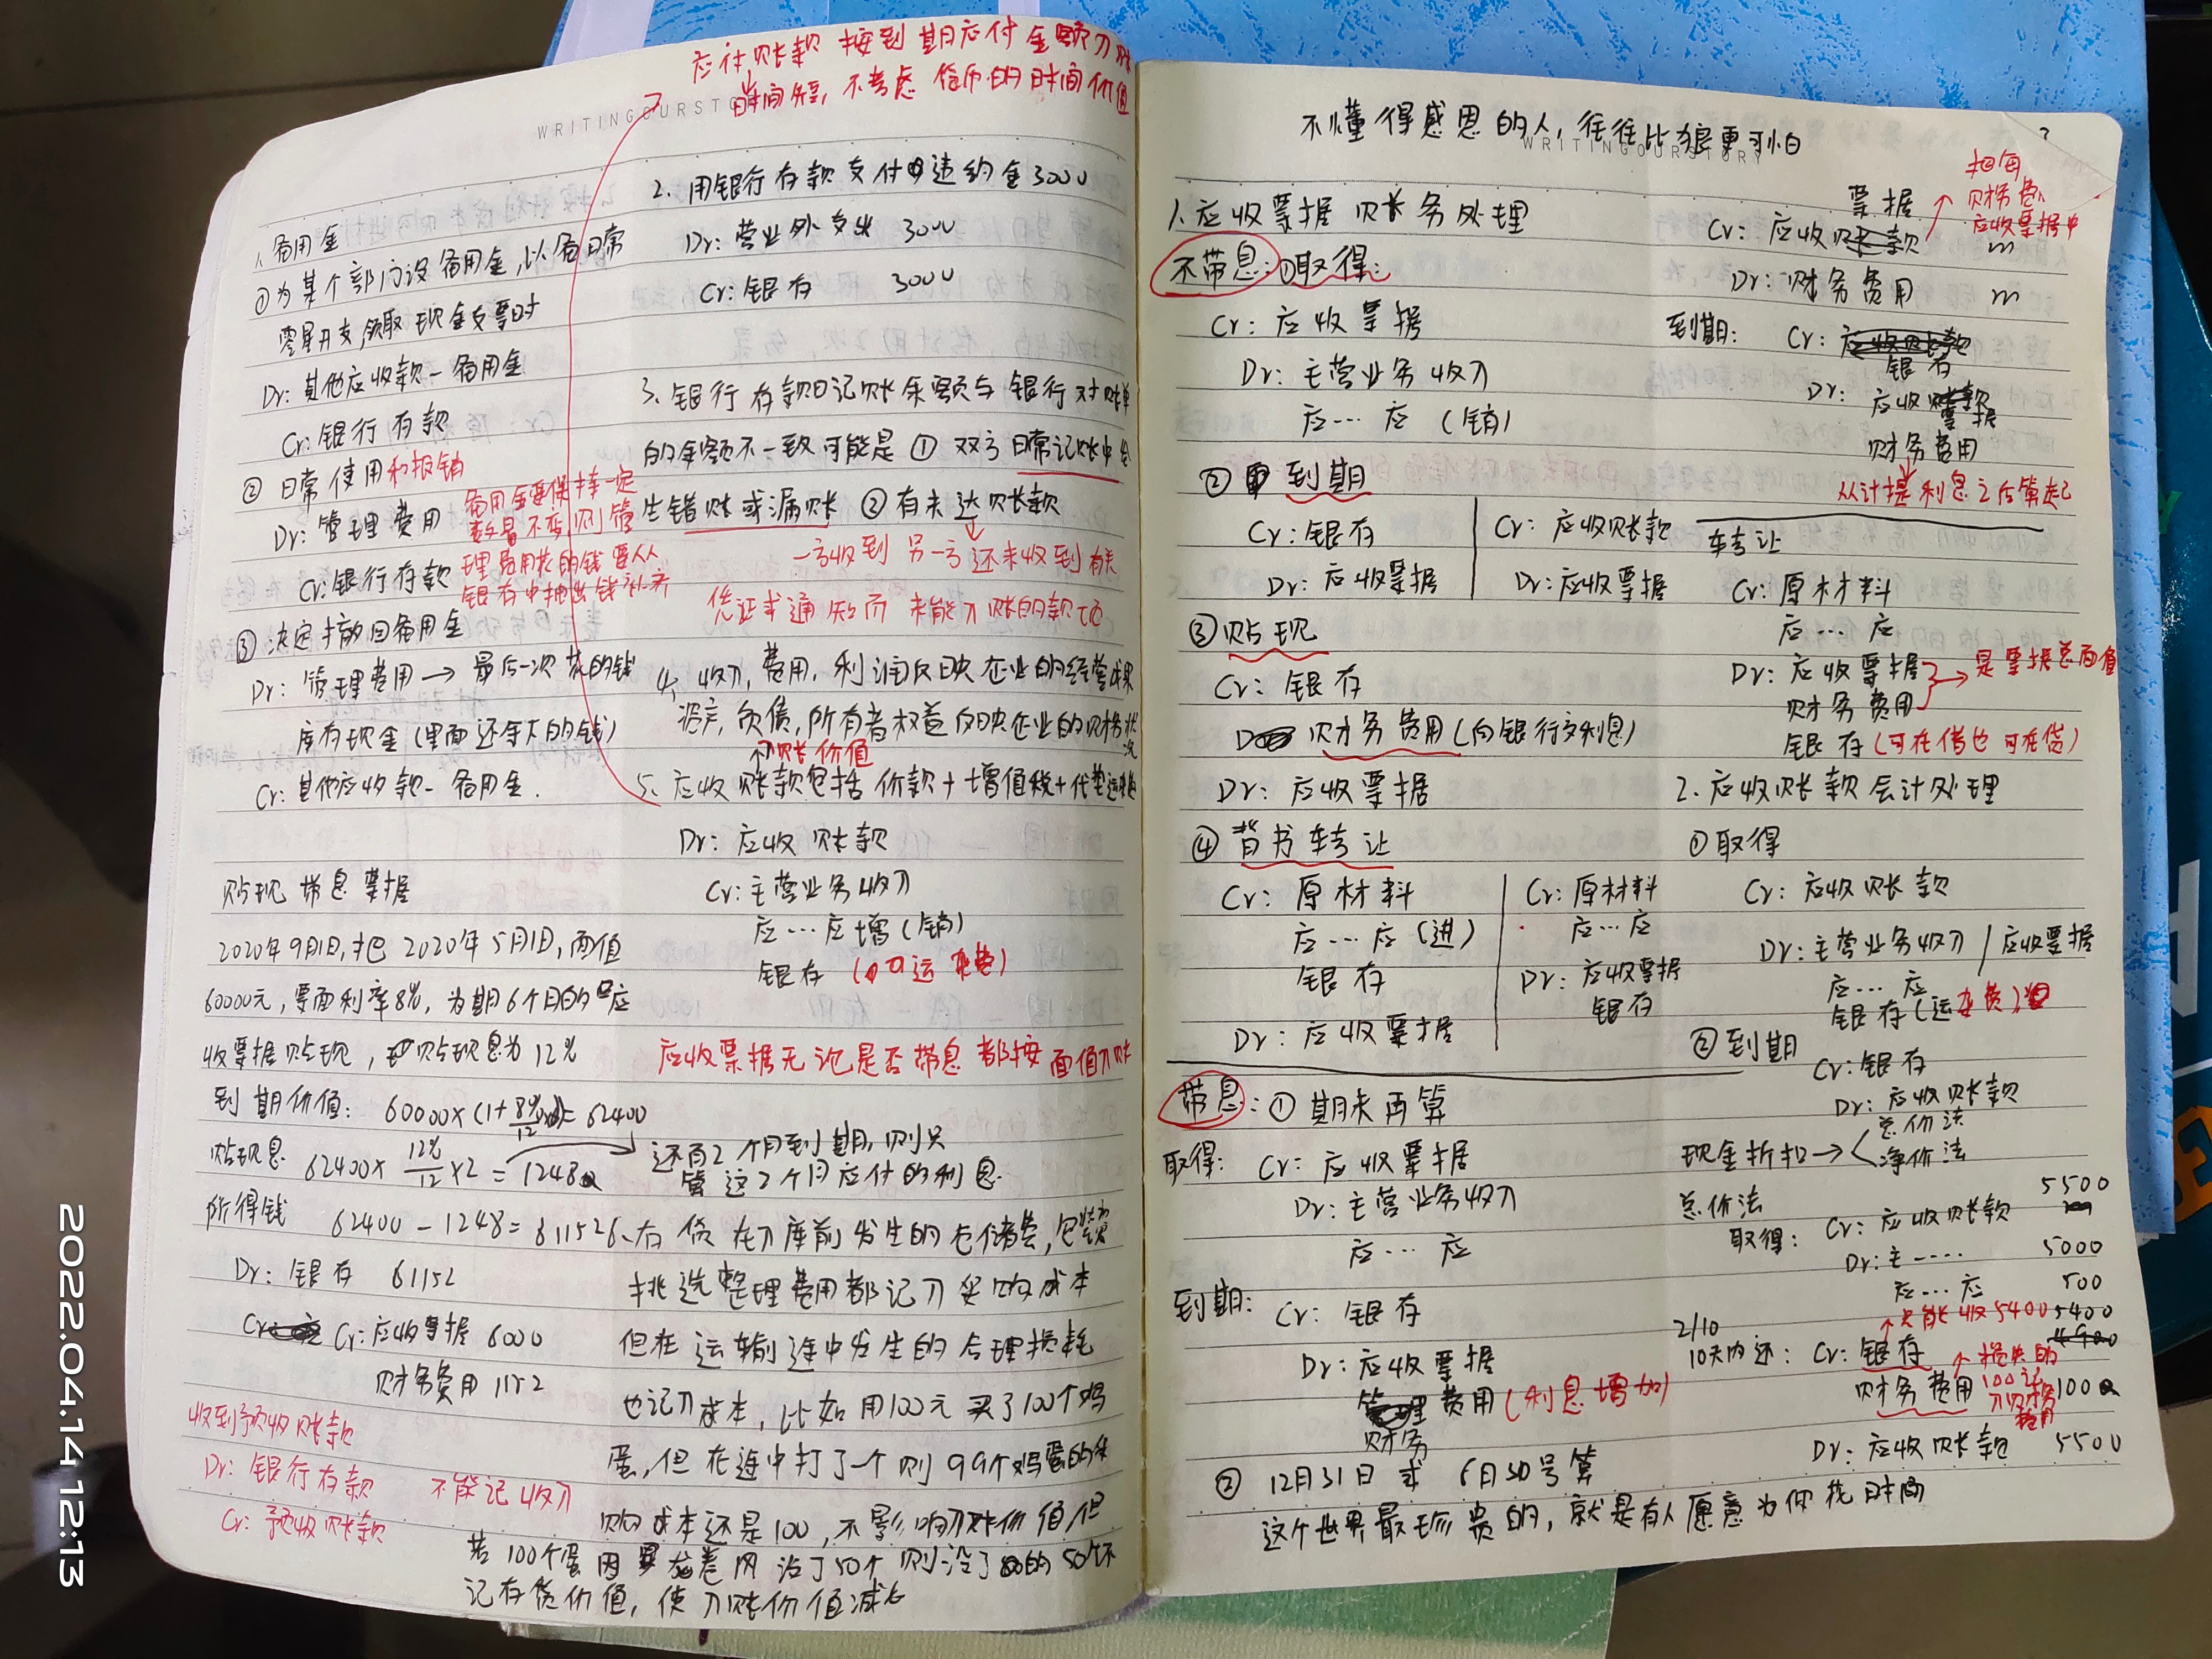 应付账款 按到期应付金额入账
时间短，不考虑货币的时间价值
WRITINGOURSTO
1、备用金
①为某个部门设备用金，以备日常
零星开支，领取现金支票时
Dr: 其他应收款－备用金
Cr: 银行存款
② 日常使用和报销
Dr: 管理费用
Cr: 银行存款
备用金要保持一定
数量不变，则管
理费用花的钱要从
银存中抽出钱补齐
③ 决定撤回备用金
Dr: 管理费用 → 最后一次花的钱
库存现金（里面还剩下的钱）
Cr: 其他应收款－备用金.
贴现 带息票据
2020年9月1日，把 2020年5月1日，面值
60000元，票面利率8%，为期6个月的应
收票据贴现，贴现息为12%
到期价值： 60000×(1+8%/12×6)=62400
贴现息 62400×12%/12×2=1248
还有2个月到期，则只
算这2个月应付的利息
所得钱 62400-1248=61152
Dr: 银存 61152
Cr: 应收票据 6000
财务费用 1152
收到预收账款
Dr: 银行存款 不能记收入
Cr: 预收账款
2. 用银行存款支付违约金3000
Dr: 营业外支出 3000
Cr: 银存 3000
3、银行存款日记账余额与银行对账单
的余额不一致可能是 ① 双方日常记账中发
生错账或漏账 ② 有未达账款
一方收到 另一方还未收到有关
凭证或通知而 未能入账的款项
4、收入，费用，利润反映企业的经营成果
资产，负债，所有者权益反映企业的财务状况
入账价值
5、应收账款包括 价款+增值税+代垫运杂费
Dr: 应收账款
Cr: 主营业务收入
应…应增（销）
银存（ 运杂费）
应收票据无论是否带息都按面值入账
6、存货在入库前发生的仓储费，包装费
挑选整理费用都记入采购成本
但在运输途中发生的合理损耗
也记入成本，比如用100元买了100个鸡
蛋，但在途中打了一个则99个鸡蛋的采
购成本还是100，不影响入账价值，但
若100个蛋因 龙卷风没了50个则没了的50个不
记存货价值，使入账价值减少
不懂得感恩的人，往往比狼更可怕
WRITINGOURSTORY
1、应收票据账务处理
不带息：①取得：
Cr: 应收票据
Dr: 主营业务收入
应…应（销）
② 到期
Cr: 银存
Dr: 应收票据
Cr: 应收账款
Dr: 应收票据
③ 贴现
Cr: 银存
财务费用（向银行交利息）
Dr: 应收票据
④ 背书转让
Cr: 原材料
应…应（进）
银存
Dr: 应收票据
Cr: 原材料
应…应
Dr: 应收票据
银存
带息：① 期末再算
取得： Cr: 应收票据
Dr: 主营业务收入
应…应
到期： Cr: 银存
Dr: 应收票据
财务费用（利息增加）
② 12月31日 或 6月30号算
这个世界最珍贵的，就是有人愿意为你找时间
票据
Cr: 应收账款
m
Dr: 财务费用 m
财务费
应收票据中
到期： Cr: 应收账款
银存
Dr: 应收账款
票据
财务费用
从计提利息之后算起
转让
Cr: 原材料
应…应
Dr: 应收票据
财务费用
是票据总面值
银存（可在借也可在贷）
2. 应收账款会计处理
①取得
Cr: 应收账款
Dr: 主营业务收入 / 应收票据
应…应
银存（运杂费）
② 到期
Cr: 银存
Dr: 应收账款
现金折扣→ 总价法
净价法
总价法
取得： Cr: 应收账款 5500
Dr: 主…… 5000
应…应 500
只能收5400
2/10
10天内还： Cr: 银存 5400
4900
财务费用 100
损失的
100记
入财务
费用
Dr: 应收账款 5500
2022.04.14 12:13